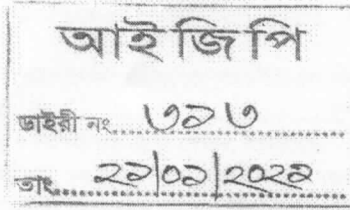 আই জি পি
ডাইরী নং ৩১৩
তাং ২১|০১|২০২১